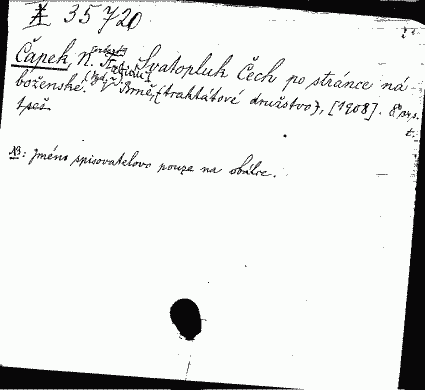 I 35720
Čápek, N. Fr.: Svatopluk Čech po stránce ná
boženské. V Brně, (traktátové družstvo), [1908]. 8° 34 s.
1 seš.
t.
NB: Jméno spisovatelovo pouze na obálce.